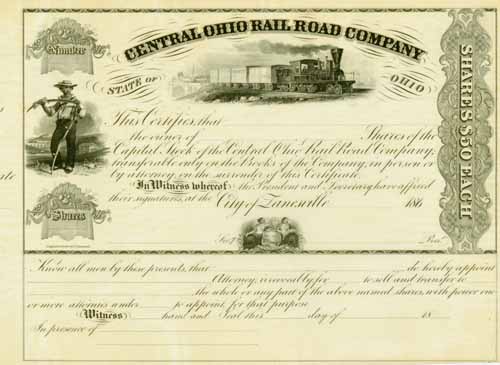 Number
CENTRAL OHIO RAIL ROAD COMPANY
STATE OF OHIO
SHARES $50 EACH
This Certifies, that
the owner of Shares of the
Capital Stock of the Central Ohio Rail Road Company,
transferable only on the Books of the Company, in person or
by attorney, on the surrender of this Certificate.
In Witness whereof, the President and Secretary have affixed
their signatures, at the City of Zanesville 186
Shares
Sec'y Pres't
Know all men by these presents, that do hereby appoint
Attorney, irrevocably for to sell and transfer to
the whole or any part of the above named shares, with power one
or more attornies under to appoint for that purpose
Witness hand and Seal this day of 18
In presence of